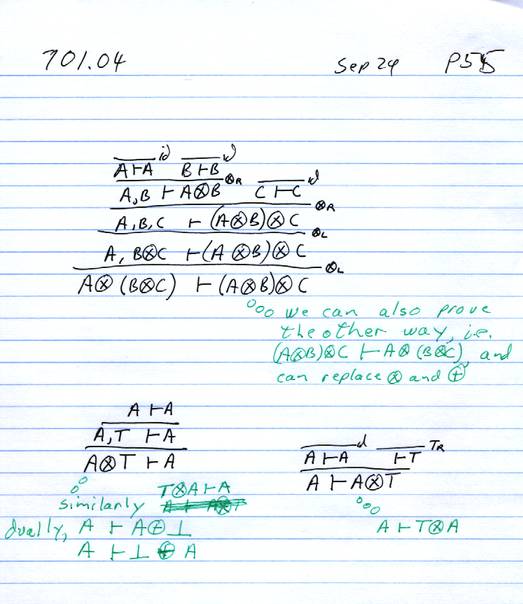 701.04 Sep 24 P55
A⊢A id B⊢B id
A,B ⊢ A⊗B ⊗R C⊢C id
A,B,C ⊢ (A⊗B)⊗C ⊗R
A, B⊗C ⊢ (A⊗B)⊗C ⊗L
A⊗(B⊗C) ⊢ (A⊗B)⊗C ⊗L
we can also prove
the other way, i.e.
(A⊗B)⊗C ⊢ A⊗(B⊗C), and
can replace ⊗ and ⊕
A ⊢A
A,T ⊢A
A⊗T ⊢A
similarly T⊗A⊢A
dually, A ⊢ A⊕⊥
A ⊢⊥ ⊕ A
A⊢A id ⊢T TR
A ⊢ A⊗T
A ⊢ T⊗A